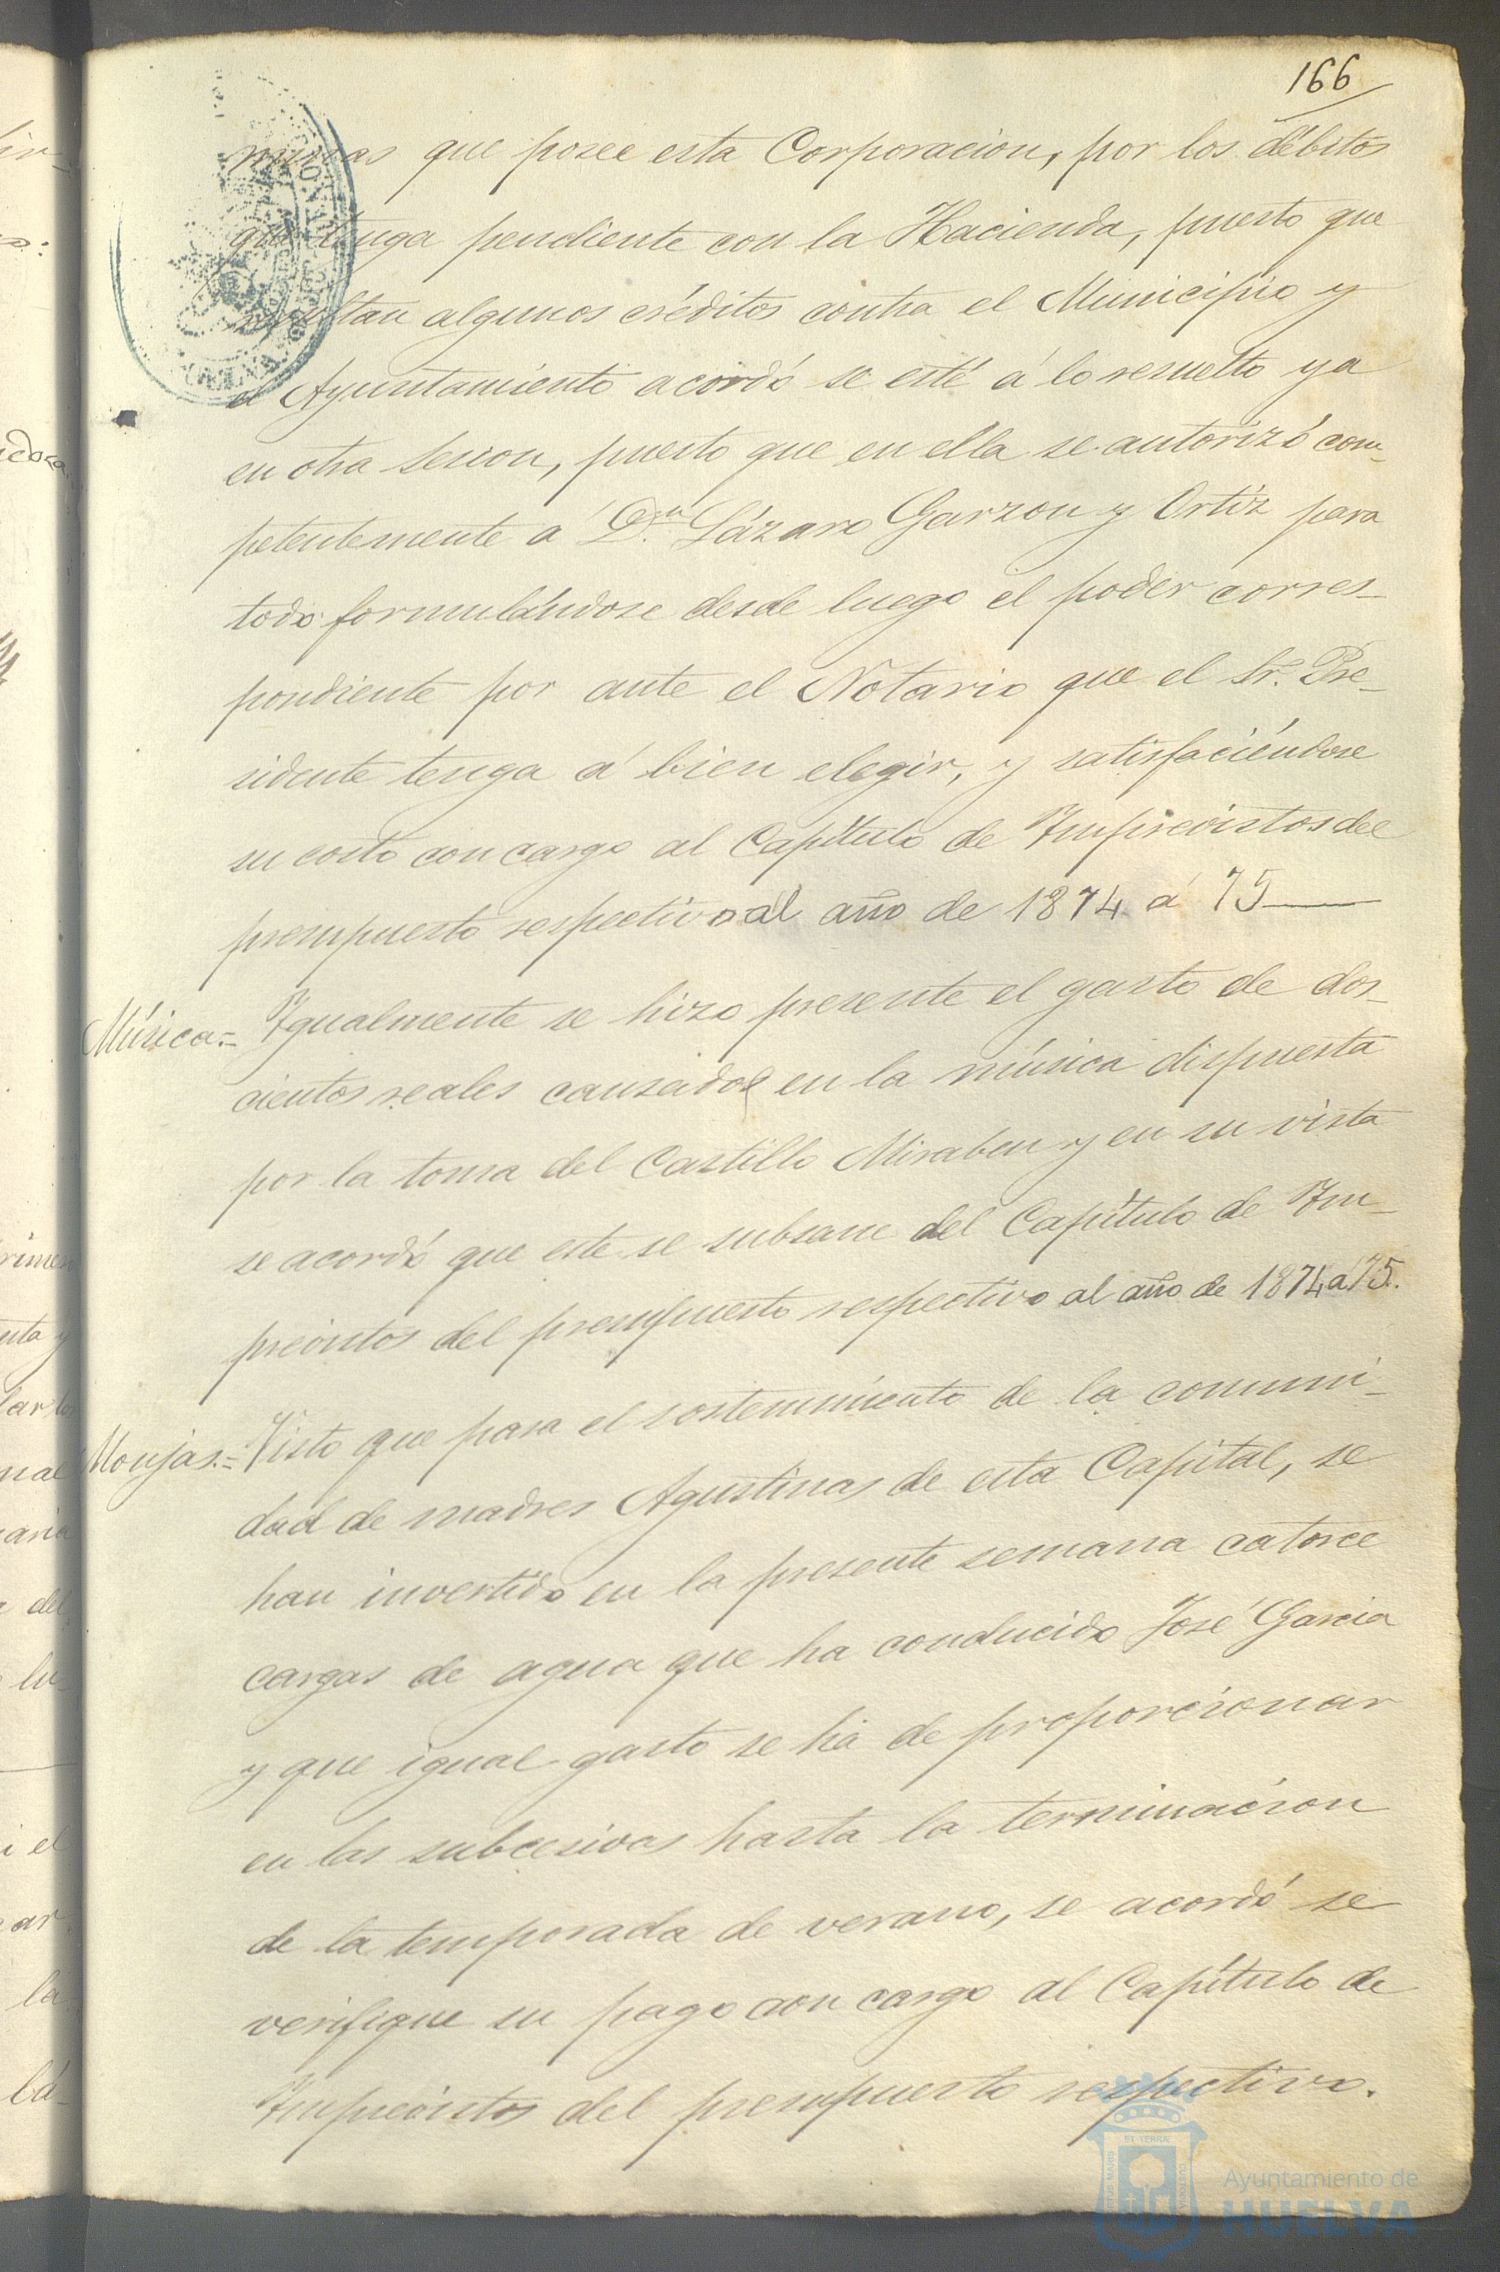 166
que posee esta Corporacion, por los débitos
que tenga pendiente con la Hacienda, puesto que
resultan algunos créditos contra el Municipio y
el Ayuntamiento acordó se esté á lo resuelto ya
en otra sesion, puesto que en ella se autorizó com-
petentemente á D.n Lázaro Garzon y Ortiz para
todo formulándose desde luego el poder corres-
pondiente por ante el Notario que el Sr. Pre-
sidente tenga á bien elegir, y satisfaciéndose
su costo con cargo al Capítulo de Imprevistos del
presupuesto respectivo al año de 1874 á 75
Música.= Igualmente se hizo presente el gasto de dos-
cientos reales causados en la música dispuesta
por la toma del Castillo Mirabeu y en su vista
se acordó que este se subsane del Capítulo de Im-
previstos del presupuesto respectivo al año de 1874 á 75.
Monjas.= Visto que para el sostenimiento de la comuni-
dad de madres Agustinas de esta Capital, se
han invertido en la presente semana catorce
cargas de agua que ha conducido José Garcia
y que igual gasto se há de proporcionar
en las subcesivas hasta la terminacion
de la temporada de verano, se acordó se
verifique su pago con cargo al Capítulo de
Imprevistos del presupuesto respectivo.
Ayuntamiento de
HUELVA